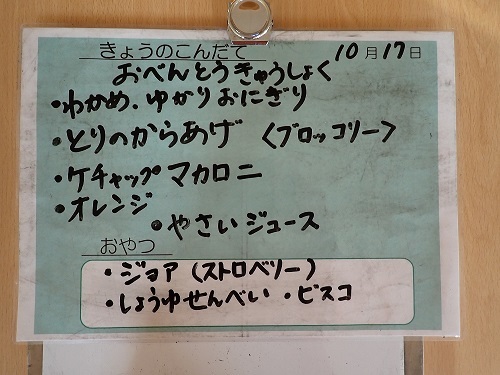 きょうのこんだて 10月17日
おべんとうきゅうしょく
・わかめ、ゆかりおにぎり
・とりのからあげ 〈ブロッコリー〉
・ケチャップマカロニ
・オレンジ
・やさいジュース
おやつ
・ジョア(ストロベリー)
・しょうゆせんべい ・ビスコ